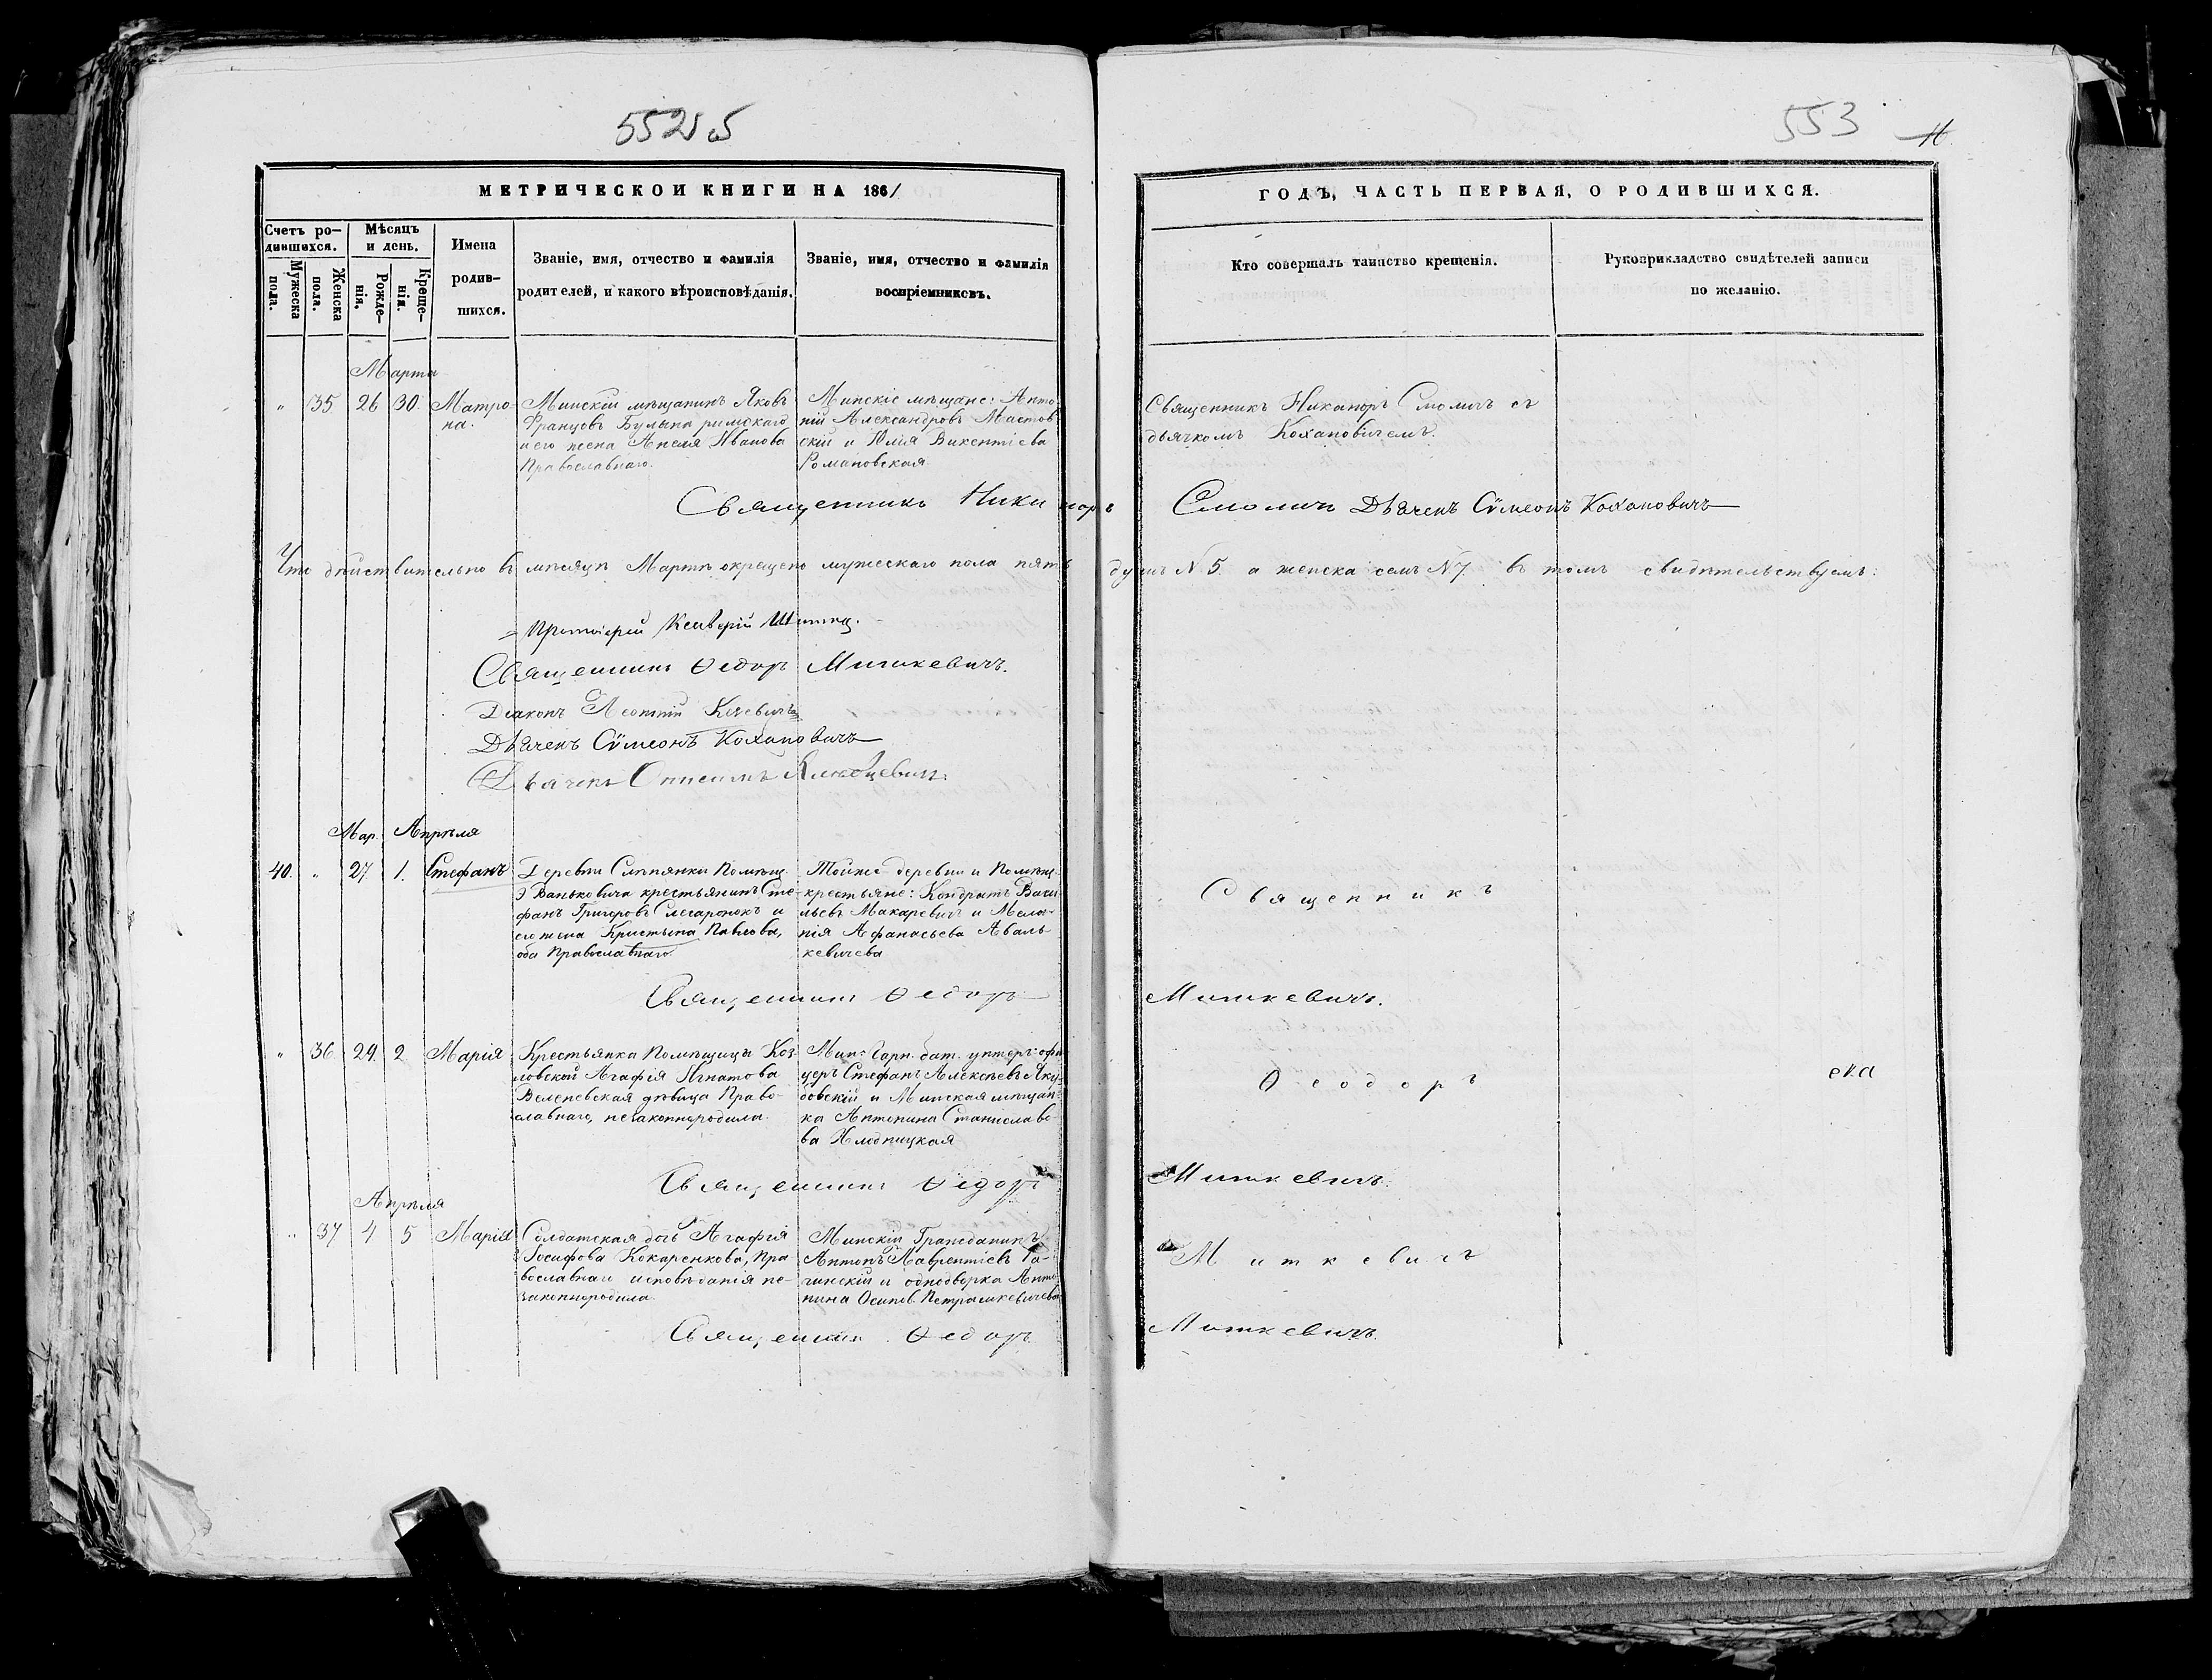 552 об
553
11
МЕТРИЧЕСКОЙ КНИГИ НА 1861
ГОДЪ, ЧАСТЬ ПЕРВАЯ, О РОДИВШИХСЯ.
Счетъ ро-
дившихся.
Мужеска
пола.
Женска
пола.
Мѣсяцъ
и день.
Рожде-
нія.
Креще-
нія.
Имена
родив-
шихся.
Званіе, имя, отчество и фамилія
родителей, и какого вѣроисповѣданія.
Званіе, имя, отчество и фамилія
воспріемниковъ.
Кто совершалъ таинство крещенія.
Рукоприкладство свидѣтелей записи
по желанію.
Марта
" 35. 26 30. Матро-
на.
Минскій мѣщанинъ Яковъ
Францовъ Булына римскаго
и его жена Анеля Иванова
Православнаго.
Минскіе мѣщане: Анто
ній Александровъ Мастов
скій и Юлія Викентіева
Романовская
Священникъ Никаноръ Смоличъ съ
дьячкомъ Кохановичемъ.
Священникъ Никаноръ Смоличъ Дьячекъ Сѵмеонъ Кохановичъ
Что дѣйствительно въ мѣсяцѣ Мартѣ окрещено мужескаго пола пять душъ N 5. а женска семъ N 7. въ томъ свидѣтельствуемъ:
Протоіерей
Священникъ Ѳедоръ Миткевичъ.
Діаконъ Леонтій
Дьячекъ Сѵмеонъ Кохановичъ
Дьячекъ Онисимъ
Мар. Апрѣля
40. " 27 1. Стефанъ
Деревни Слѣпянки Помѣщ.
Э Ваньковича крестьянинъ Сте-
фанъ Григоровъ Слесаронокъ и
его жена Кристына Павлова,
оба Православнаго.
Тойже деревни и Помѣщ.
крестьяне: Кондратъ Васи
льевъ Макаревичъ и Мела-
нія Афанасьева Аваль
кевичева
Священникъ
Священникъ Ѳедоръ Миткевичъ.
" 36. 29. 2. Марія
Крестьянка Помѣщицы Коз
ловской Агафія Игнатова
Веленевская дѣвица Право-
славнаго, незаконнородила.
Мин. Гарн. бат. унтеръ-офи
церъ Стефанъ Алексѣевъ Яку-
бовскій и Минская мѣщан-
ка Антонина Станиславо-
ва Хлодницкая
Ѳеодоръ
Священникъ Ѳедоръ Миткевичъ.
Апрѣля
" 37 4 5 Марія
Солдатская дочь Агафія
Іосифова Кокаренкова, Пра
вославнаго исповѣданія не-
законнородила.
Минскій Гражданинъ
Антонъ Лаврентіевъ Га-
чинскій и однодворка Анто
нина Осипов. Петрашкевичева
Миткевичъ
Священникъ Ѳедоръ Миткевичъ.